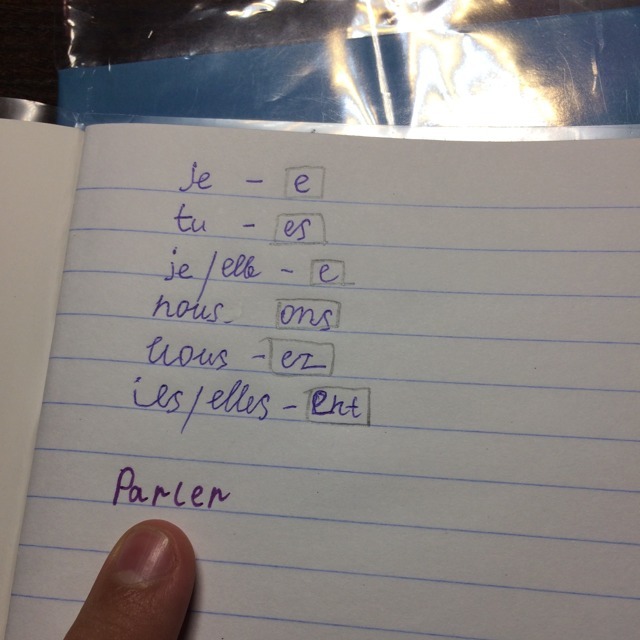 je - e
tu - es
je/elle - e
nous - ons
vous - ez
ils/elles - ent
Parler